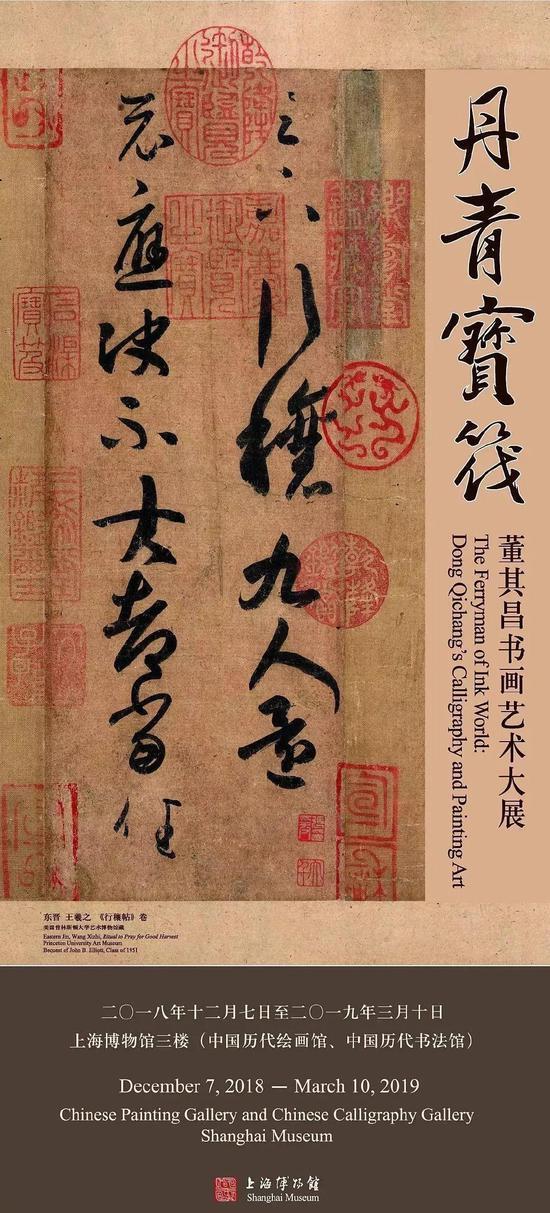 丹青寶筏
董其昌书画艺术大展
The Ferryman of Ink World:
Dong Qichang's Calligraphy and Painting Art
足下行穰九人還
示應決不大都當任
乾隆御覽之寶
嘉慶御覽之寶
石渠寶笈
三希堂精鑑璽
乾隆鑑賞
东晋 王羲之 《行穰帖》卷
美国普林斯顿大学艺术博物馆藏
Eastern Jin, Wang Xizhi, Ritual to Pray for Good Harvest
Princeton University Art Museum
Bequest of John B. Elliott, Class of 1951
二〇一八年十二月七日至二〇一九年三月十日
上海博物馆三楼（中国历代绘画馆、中国历代书法馆）
December 7, 2018 — March 10, 2019
Chinese Painting Gallery and Chinese Calligraphy Gallery
Shanghai Museum
上海博物館
Shanghai Museum